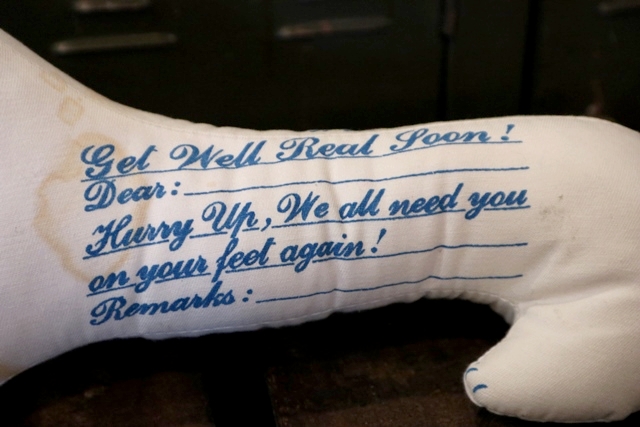 Get Well Real Soon!
Dear:
Hurry Up, We all need you
on your feet again!
Remarks: